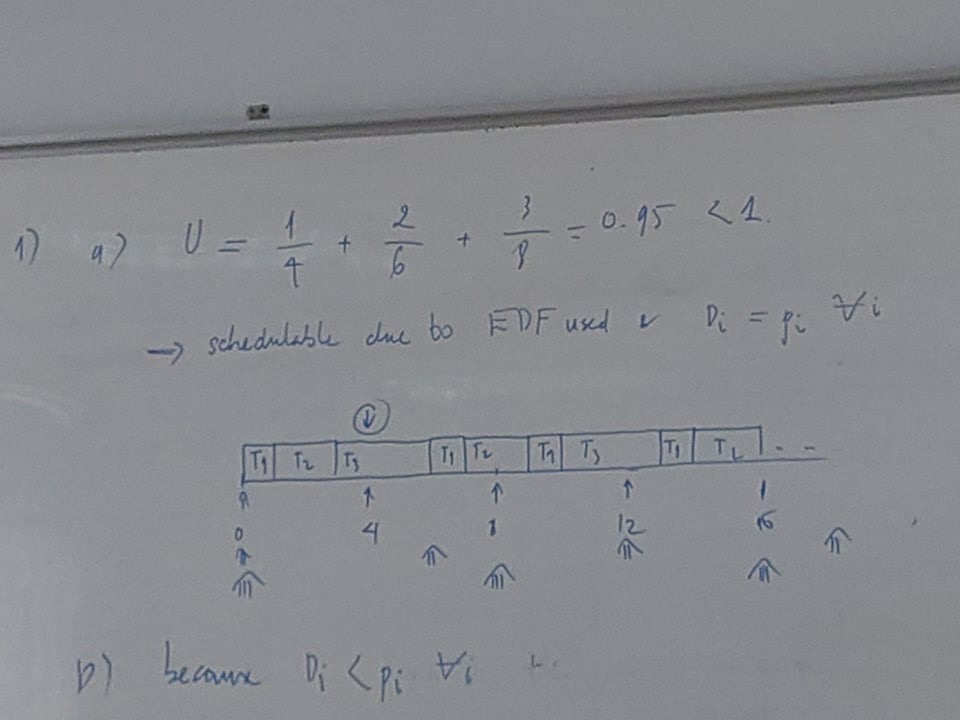 1) a) U = 1/4 + 2/6 + 3/8 = 0.95 < 1.
→ schedulable due to EDF used & Di = pi ∀i
↓
T1 T2 T3 T1 T2 T1 T3 T1 T2 . . .
0 4 8 12 16
b) because Di < pi ∀i